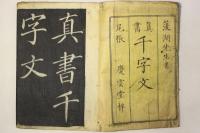 湖先生書
真書
千字文
尾張 慶雲堂梓
真書千
字文